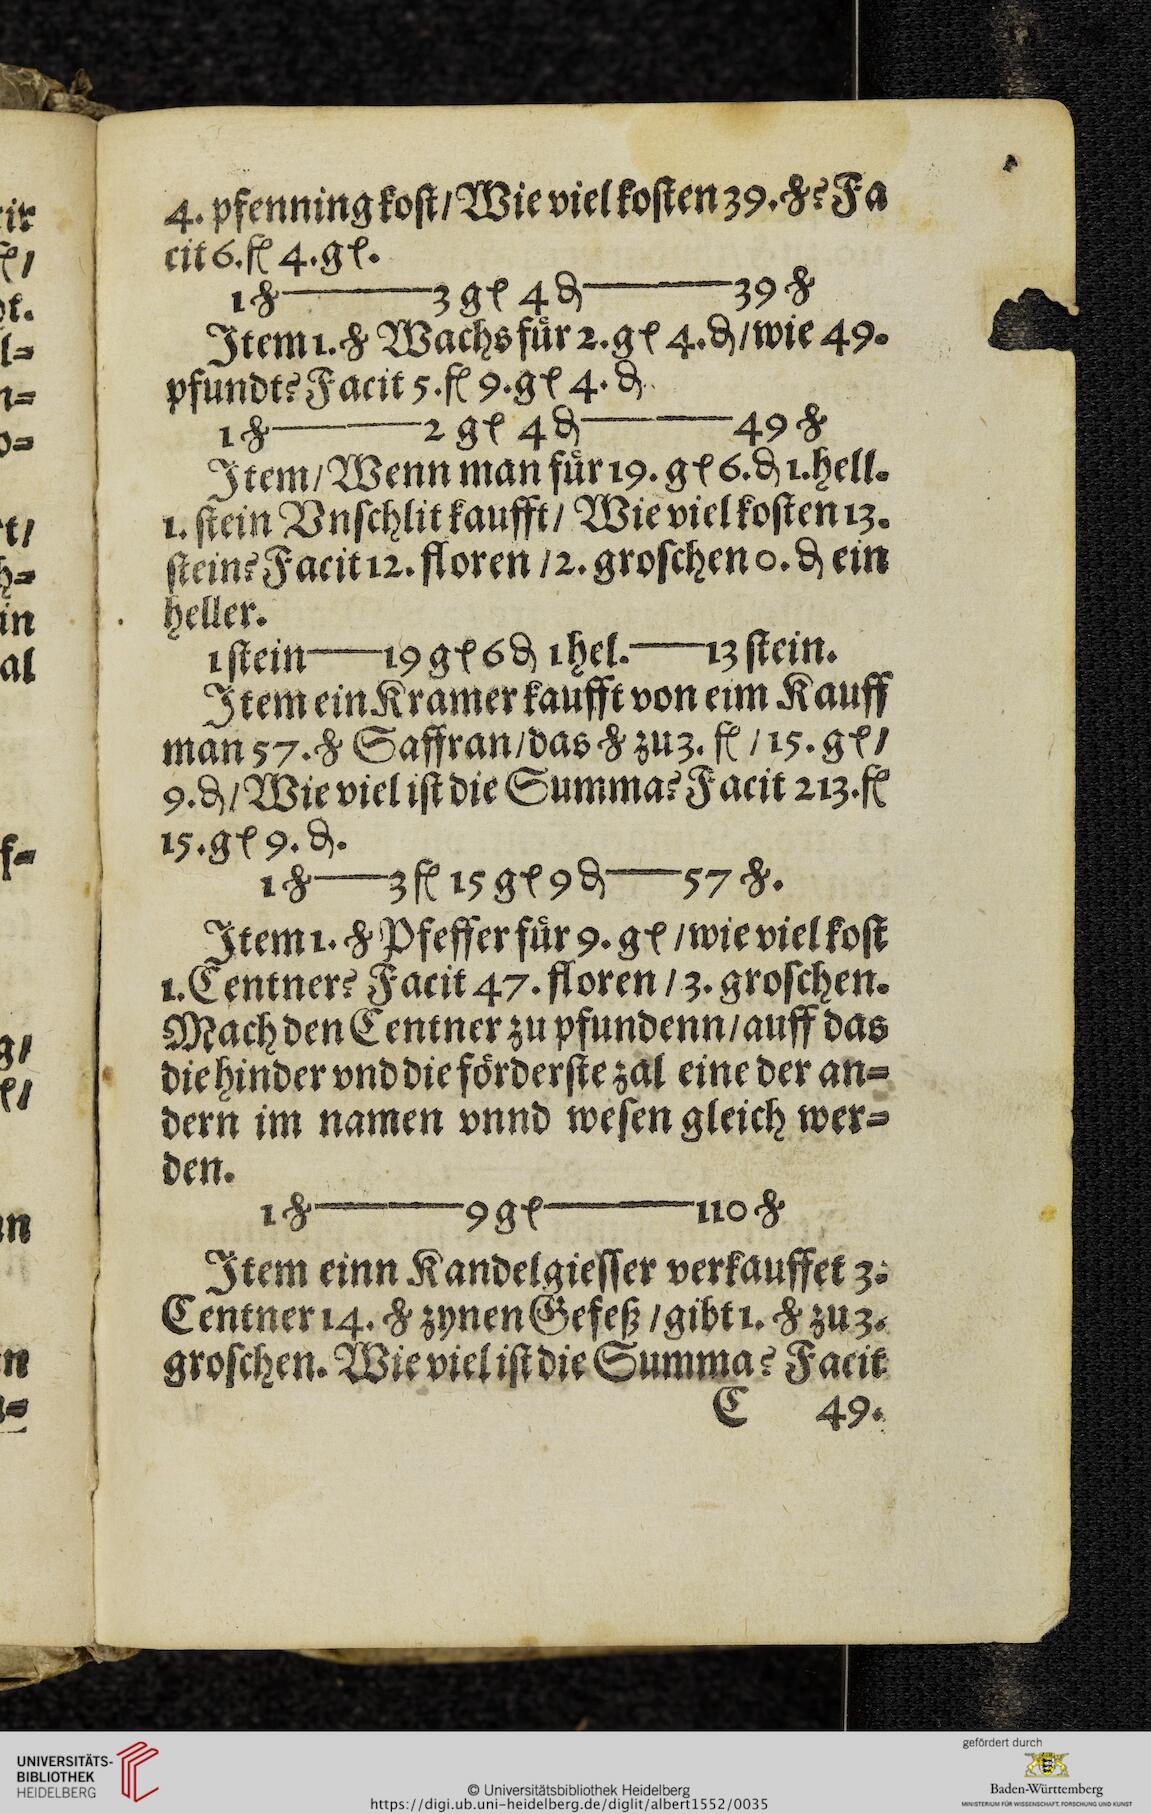 4. pfenning kost / Wie viel kosten 39. ℔? Fa
cit 6. fl 4. gl.
1 ℔ — 3 gl 4 ₰ — 39 ℔
Item 1. ℔ Wachs fuͤr 2. gl 4. ₰ / wie 49.
pfundt? Facit 5. fl 9. gl 4. ₰
1 ℔ — 2 gl 4 ₰ — 49 ℔
Item / Wenn man fuͤr 19. gl 6. ₰ 1. hell.
1. stein Vnschlit kaufft / Wie viel kosten 13.
stein? Facit 12. floren / 2. groschen 0. ₰ ein
heller.
1 stein — 19 gl 6 ₰ 1 hel. — 13 stein.
Item ein Kramer kaufft von eim Kauff
man 57. ℔ Saffran / das ℔ zu 3. fl / 15. gl /
9. ₰ / Wie viel ist die Summa? Facit 213. fl
15. gl 9. ₰.
1 ℔ — 3 fl 15 gl 9 ₰ — 57 ℔.
Item 1. ℔ Pfeffer fuͤr 9. gl / wie viel kost
1. Centner? Facit 47. floren / 3. groschen.
Mach den Centner zu pfundenn / auff das
die hinder vnd die foͤrderste zal eine der an=
dern im namen vnnd wesen gleich wer=
den.
1 ℔ — 9 gl — 110 ℔
Item einn Kandelgiesser verkauffet 3.
Centner 14. ℔ zynen Gefeß / gibt 1. ℔ zu 3.
groschen. Wie viel ist die Summa? Facit
C 49.
UNIVERSITÄTS-
BIBLIOTHEK
HEIDELBERG
© Universitätsbibliothek Heidelberg
https://digi.ub.uni-heidelberg.de/diglit/albert1552/0035
gefördert durch
Baden-Württemberg
MINISTERIUM FÜR WISSENSCHAFT, FORSCHUNG UND KUNST